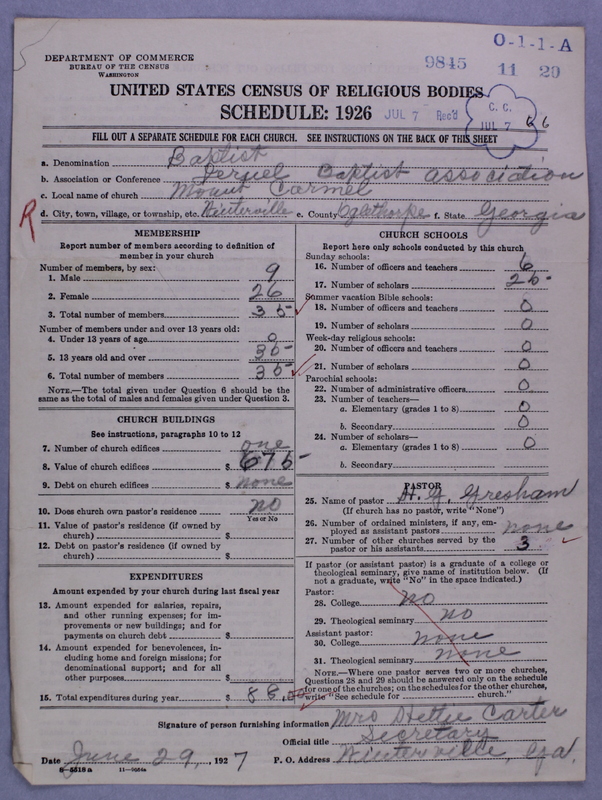 O-1-1-A
DEPARTMENT OF COMMERCE
BUREAU OF THE CENSUS
WASHINGTON
9845 11 29
UNITED STATES CENSUS OF RELIGIOUS BODIES
SCHEDULE: 1926 JUL 7 Rec'd C. C. JUL 7
FILL OUT A SEPARATE SCHEDULE FOR EACH CHURCH. SEE INSTRUCTIONS ON THE BACK OF THIS SHEET
a. Denomination Baptist
b. Association or Conference Baptist association
c. Local name of church Mount Carmel
R d. City, town, village, or township, etc. Winterville e. County Oglethorpe f. State Georgia
MEMBERSHIP
Report number of members according to definition of
member in your church
Number of members, by sex:
1. Male 9
2. Female 26
3. Total number of members 35
Number of members under and over 13 years old:
4. Under 13 years of age 0
5. 13 years old and over 35
6. Total number of members 35
NOTE.—The total given under Question 6 should be the
same as the total of males and females given under Question 3.
CHURCH BUILDINGS
See instructions, paragraphs 10 to 12
7. Number of church edifices one
8. Value of church edifices $ 675
9. Debt on church edifices $ none
10. Does church own pastor's residence no
Yes or No
11. Value of pastor's residence (if owned by
church) $
12. Debt on pastor's residence (if owned by
church) $
EXPENDITURES
Amount expended by your church during last fiscal year
13. Amount expended for salaries, repairs,
and other running expenses; for im-
provements or new buildings; and for
payments on church debt $
14. Amount expended for benevolences, in-
cluding home and foreign missions; for
denominational support; and for all
other purposes $
15. Total expenditures during year $ 88.00
CHURCH SCHOOLS
Report here only schools conducted by this church
Sunday schools:
16. Number of officers and teachers 6
17. Number of scholars 25
Summer vacation Bible schools:
18. Number of officers and teachers 0
19. Number of scholars 0
Week-day religious schools:
20. Number of officers and teachers 0
21. Number of scholars 0
Parochial schools:
22. Number of administrative officers 0
23. Number of teachers—
a. Elementary (grades 1 to 8) 0
b. Secondary 0
24. Number of scholars—
a. Elementary (grades 1 to 8) 0
b. Secondary
PASTOR
25. Name of pastor H. G. Gresham
(If church has no pastor, write "None")
26. Number of ordained ministers, if any, em-
ployed as assistant pastors none
27. Number of other churches served by the
pastor or his assistants 3
If pastor (or assistant pastor) is a graduate of a college or
theological seminary, give name of institution below. (If
not a graduate, write "No" in the space indicated.)
Pastor:
28. College no
29. Theological seminary no
Assistant pastor:
30. College none
31. Theological seminary none
NOTE.—Where one pastor serves two or more churches,
Questions 28 and 29 should be answered only on the schedule
for one of the churches; on the schedules for the other churches,
write "See schedule for church."
Signature of person furnishing information Mrs Hettye Carter
Official title Secretary
Date June 29, 1927 P. O. Address Winterville, Ga.
8-5518a